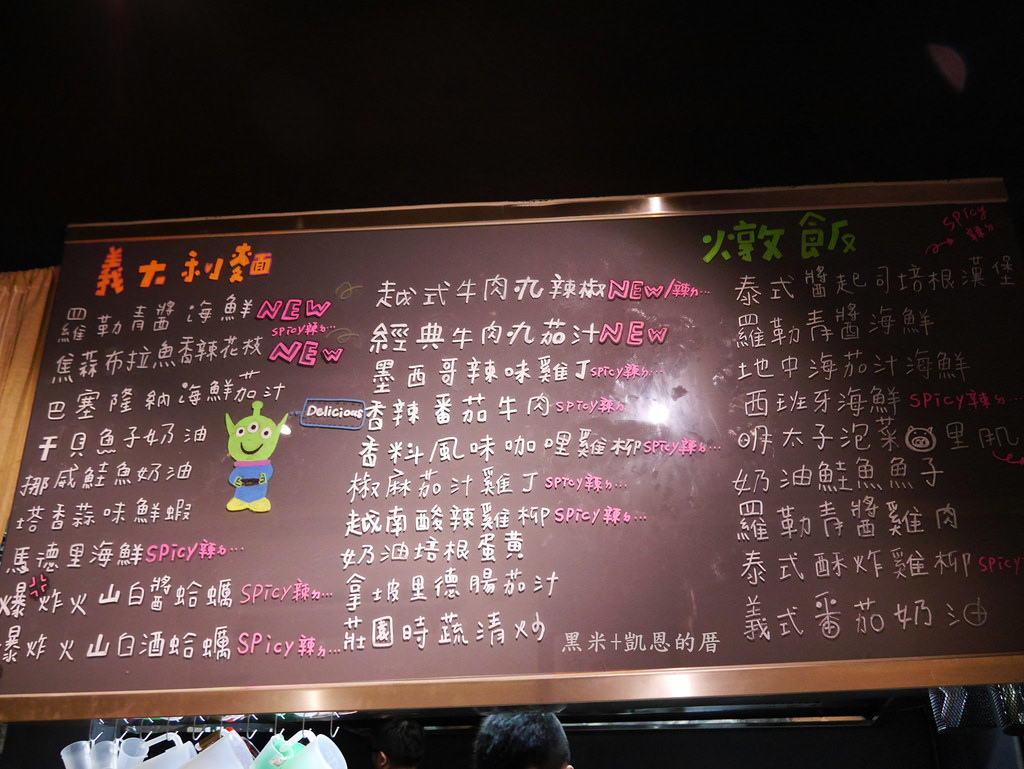 義大利麵
羅勒青醬海鮮 NEW
spicy辣ㄉ...
焦蒜布拉魚香辣花枝 NEW
巴塞隆納海鮮茄汁
干貝魚子奶油
挪威鮭魚奶油
塔香蒜味鮮蝦
馬德里海鮮 spicy辣ㄉ...
爆炸火山白醬蛤蠣 SPicy辣ㄉ...
爆炸火山白酒蛤蠣 SPicy辣ㄉ...
Delicious
越式牛肉丸辣椒 NEW/辣ㄉ...
經典牛肉丸茄汁 NEW
墨西哥辣味雞丁 spicy辣ㄉ...
香辣番茄牛肉 spicy辣ㄉ
香料風味咖哩雞柳 spicy辣ㄉ...
椒麻茄汁雞丁 spicy辣ㄉ...
越南酸辣雞柳 spicy辣ㄉ...
奶油培根蛋黃
拿坡里德腸茄汁
莊園時蔬清炒
燉飯
spicy
辣ㄉ
泰式醬起司培根漢堡
羅勒青醬海鮮
地中海茄汁海鮮
西班牙海鮮 SPicy辣ㄉ...
明太子泡菜里肌
奶油鮭魚魚子
羅勒青醬雞肉
泰式酥炸雞柳 spicy
義式番茄奶油
黑米+凱恩的厝